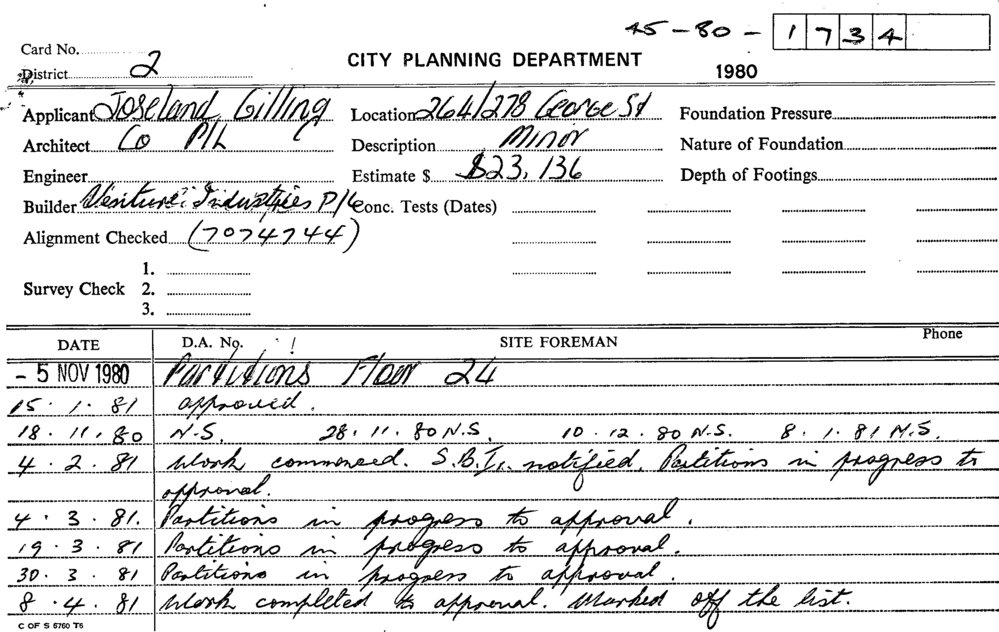 45-80- 1 7 3 4
Card No.
District 2
CITY PLANNING DEPARTMENT
1980
Applicant Joseland, Gilling
Location 264/278 George St
Foundation Pressure
Architect Co P/L
Description Minor
Nature of Foundation
Engineer
Estimate $ $23,136
Depth of Footings
Builder Venture Industries P/L
Conc. Tests (Dates)
Alignment Checked (7074744)
1.
Survey Check 2.
3.
DATE D.A. No. SITE FOREMAN Phone
- 5 NOV 1980 Partitions Floor 24
15. 1. 81 approved.
18. 11. 80 N.S. 28. 11. 80 N.S. 10. 12. 80 N.S. 8. 1. 81 N.S.
4. 2. 81 Work commenced. S.B.I. notified. Partitions in progress to
approval.
4. 3. 81. Partitions in progress to approval.
19. 3. 81 Partitions in progress to approval.
30. 3. 81 Partitions in progress to approval.
8. 4. 81 Work completed to approval. Marked off the list.
C OF S 6760 T6